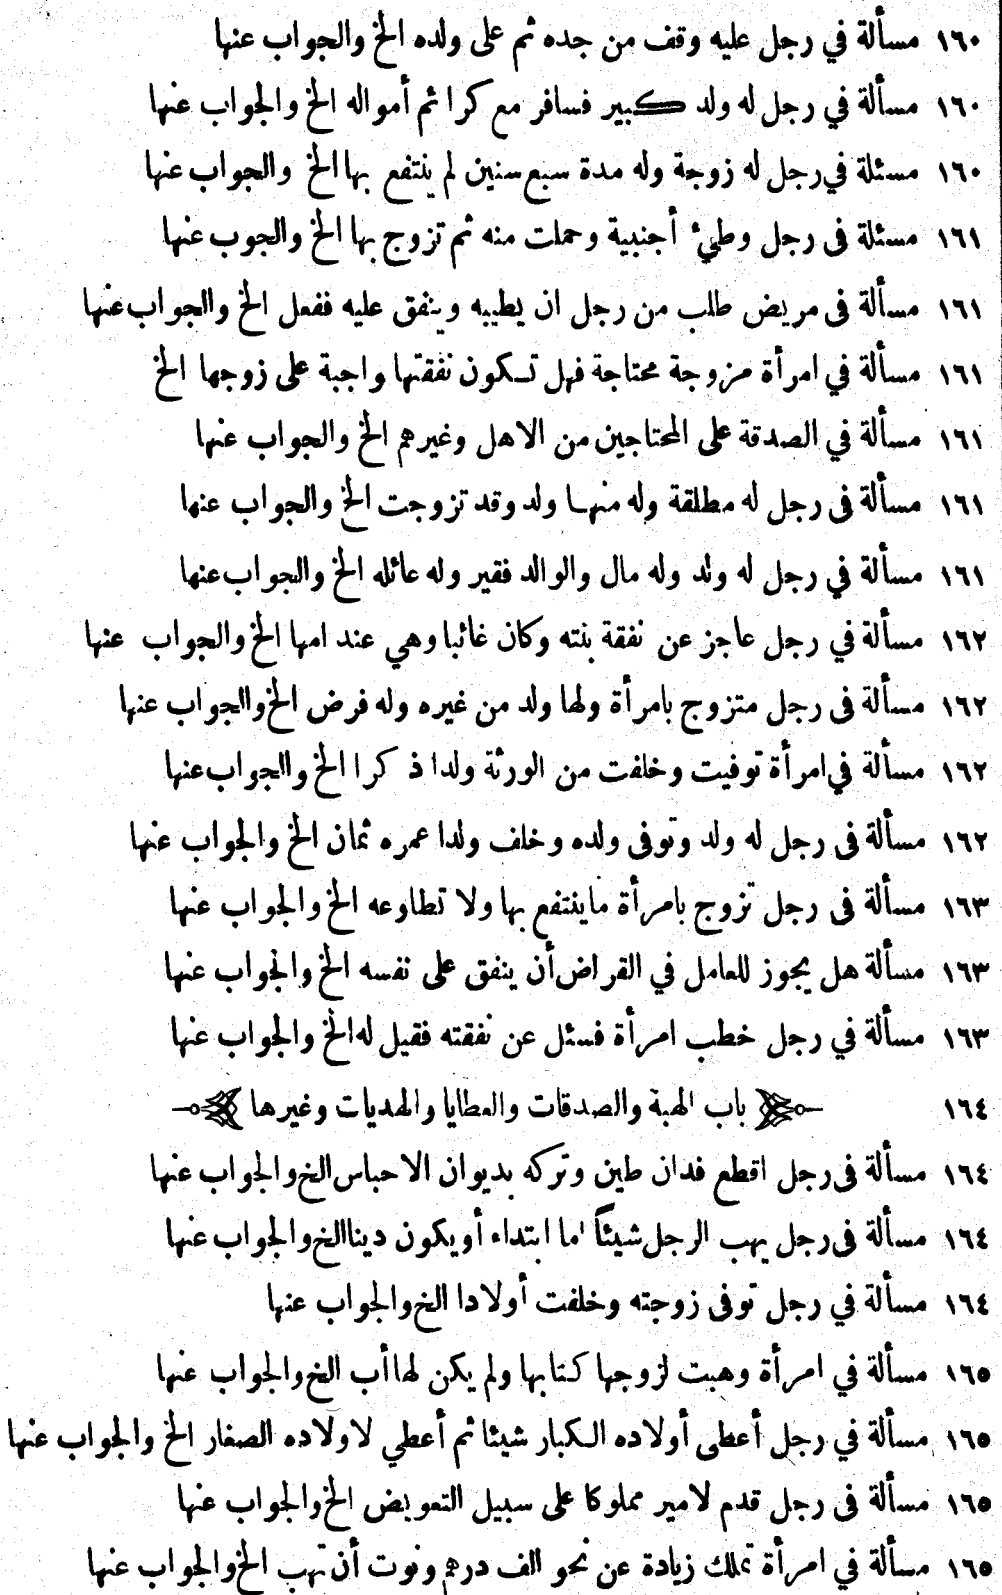 ١٦٠ مسألة في رجل عليه وقف من جده ثم على ولده الخ والجواب عنها
١٦٠ مسألة في رجل له ولد كبير فسافر مع كرا ثم أمواله الخ والجواب عنها
١٦٠ مسئلة في رجل له زوجة وله مدة سبع سنين لم ينتفع بها الخ والجواب عنها
١٦١ مسئلة فى رجل وطيء أجنبية وحملت منه ثم تزوج بها الخ والجوب عنها
١٦١ مسألة فى مريض طلب من رجل ان يطيبه وينفق عليه ففعل الخ والجواب عنها
١٦١ مسألة في امرأة مزوجة محتاجة فهل تكون نفقتها واجبة على زوجها الخ
١٦١ مسألة في الصدقة على المحتاجين من الاهل وغيرهم الخ والجواب عنها
١٦١ مسألة فى رجل له مطلقة وله منها ولد وقد تزوجت الخ والجواب عنها
١٦١ مسألة في رجل له ولد وله مال والوالد فقير وله عائله الخ والجواب عنها
١٦٢ مسألة في رجل عاجز عن نفقة بنته وكان غائبا وهي عند امها الخ والجواب عنها
١٦٢ مسألة فى رجل متزوج بامرأة ولها ولد من غيره وله فرض الخ والجواب عنها
١٦٢ مسألة في امرأة توفيت وخلفت من الورثة ولدا ذكرا الخ والجواب عنها
١٦٢ مسألة فى رجل له ولد وتوفى ولده وخلف ولدا عمره ثمان الخ والجواب عنها
١٦٣ مسألة فى رجل تزوج بامرأة ماينتفع بها ولا تطاوعه الخ والجواب عنها
١٦٣ مسألة هل يجوز للعامل في القراض أن ينفق على نفسه الخ والجواب عنها
١٦٣ مسألة في رجل خطب امرأة فسئل عن نفقته فقيل له الخ والجواب عنها
١٦٤ باب الهبة والصدقات والعطايا والهديات وغيرها
١٦٤ مسألة فى رجل اقطع فدان طين وتركه بديوان الاحباس الخ والجواب عنها
١٦٤ مسألة فى رجل يهب الرجل شيئاً اما ابتداء أو يكون دينا الخ والجواب عنها
١٦٤ مسألة في رجل توفى زوجته وخلفت أولادا الخ والجواب عنها
١٦٥ مسألة في امرأة وهبت لزوجها كتابها ولم يكن لها أب الخ والجواب عنها
١٦٥ مسألة في رجل أعطى أولاده الكبار شيئا ثم أعطي لاولاده الصغار الخ والجواب عنها
١٦٥ مسألة فى رجل قدم لامير مملوكا على سبيل التعويض الخ والجواب عنها
١٦٥ مسألة في امرأة تملك زيادة عن نحو الف درهم ونوت أن تهب الخ والجواب عنها